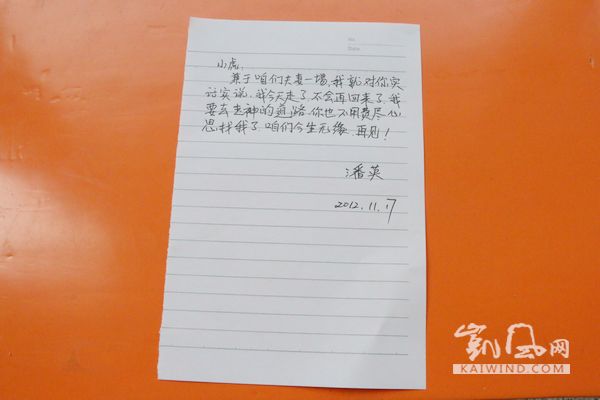 No.
Date.
小虎,
基于咱们夫妻一场,我就对你实
话实说,我今天走了,不会再回来了,我
要去走神的道路,你也不用费尽心
思找我了,咱们今生无缘,再见!
潘英
2012.11.17
凯风网
KAIWIND.COM